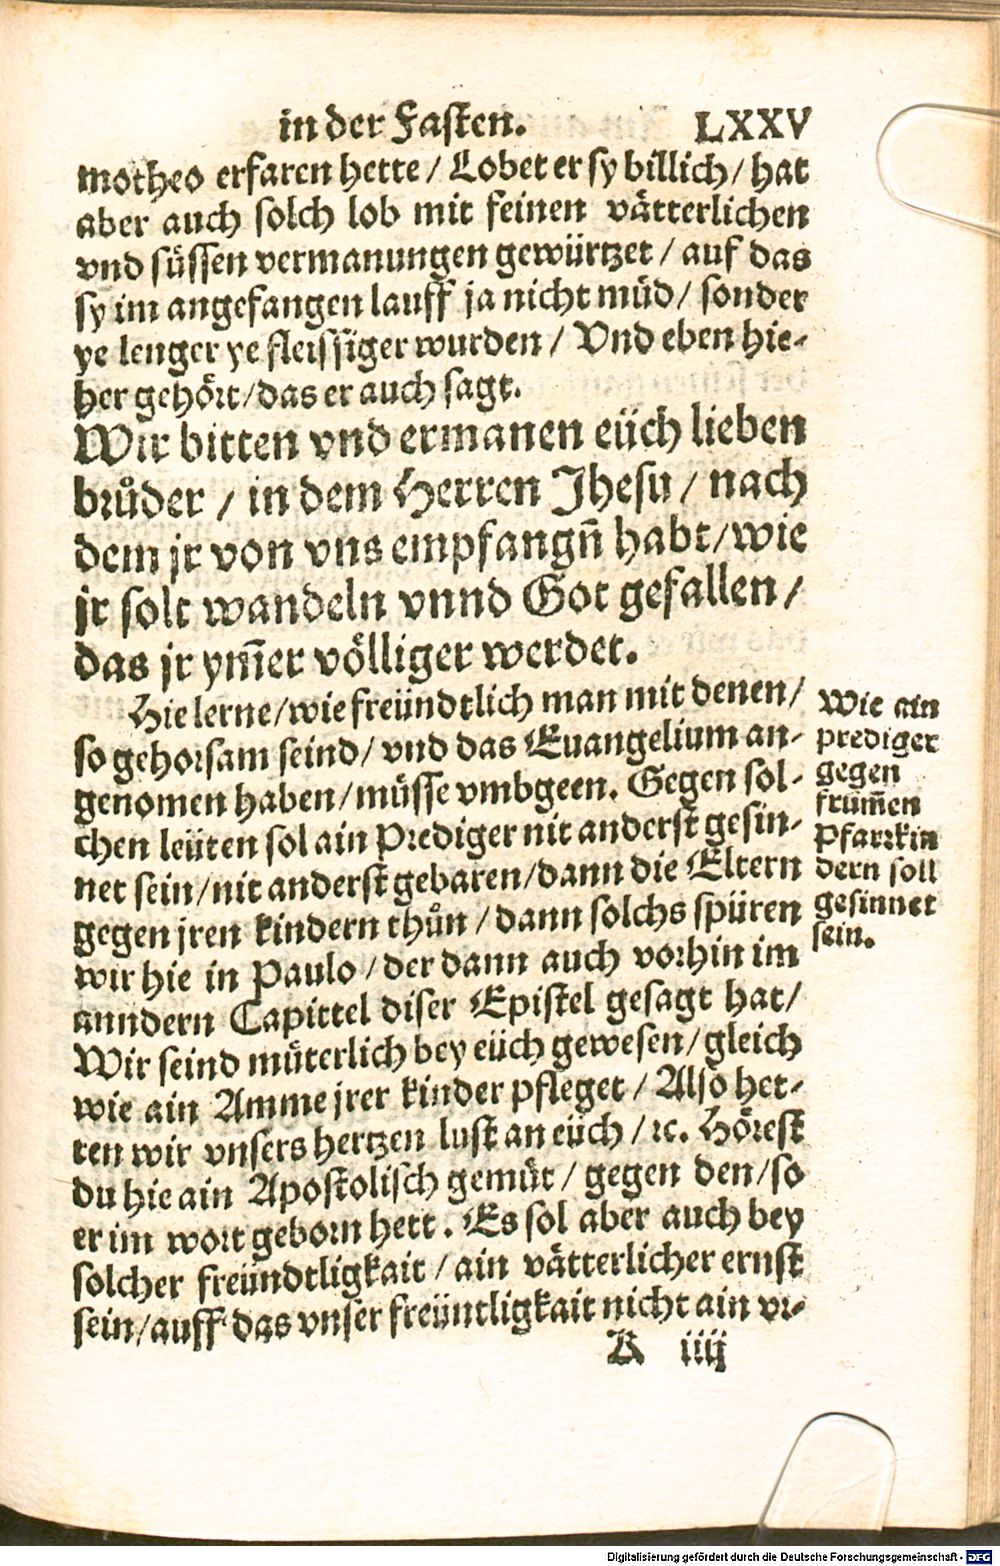 in der Fasten. LXXV
motheo erfaren hette / Lobet er sy billich / hat
aber auch solch lob mit feinen vätterlichen
vnd süssen vermanungen gewürtzet / auf das
sy im angefangen lauff ja nicht müd / sonder
ye lenger ye fleissiger wurden / Vnd eben hie-
her gehört / das er auch sagt.
Wir bitten vnd ermanen eüch lieben
brůder / in dem Herren Jhesu / nach
dem jr von vns empfangñ habt / wie
jr solt wandeln vnnd Got gefallen /
das jr ym̃er völliger werdet.
Hie lerne / wie freündtlich man mit denen /
so gehorsam seind / vnd das Euangelium an-
genomen haben / müsse vmbgeen. Gegen sol-
chen leüten sol ain Prediger nit anderst gesin-
net sein / nit anderst gebaren / dann die Eltern
gegen jren kindern thůn / dann solchs spüren
wir hie in Paulo / der dann auch vorhin im
anndern Capittel diser Epistel gesagt hat /
Wir seind müterlich bey eüch gewesen / gleich
wie ain Amme jrer kinder pfleget / Also het-
ten wir vnsers hertzen lust an eüch / ꝛc. Hörest
du hie ain Apostolisch gemüt / gegen den / so
er im wort geborn hett. Es sol aber auch bey
solcher freündtligkait / ain vätterlicher ernst
sein / auff das vnser freüntligkait nicht ain vr-
K iiij
Wie ain
prediger
gegen
frum̃en
Pfarrkin
dern soll
gesinnet
sein.
Digitalisierung gefördert durch die Deutsche Forschungsgemeinschaft - DFG